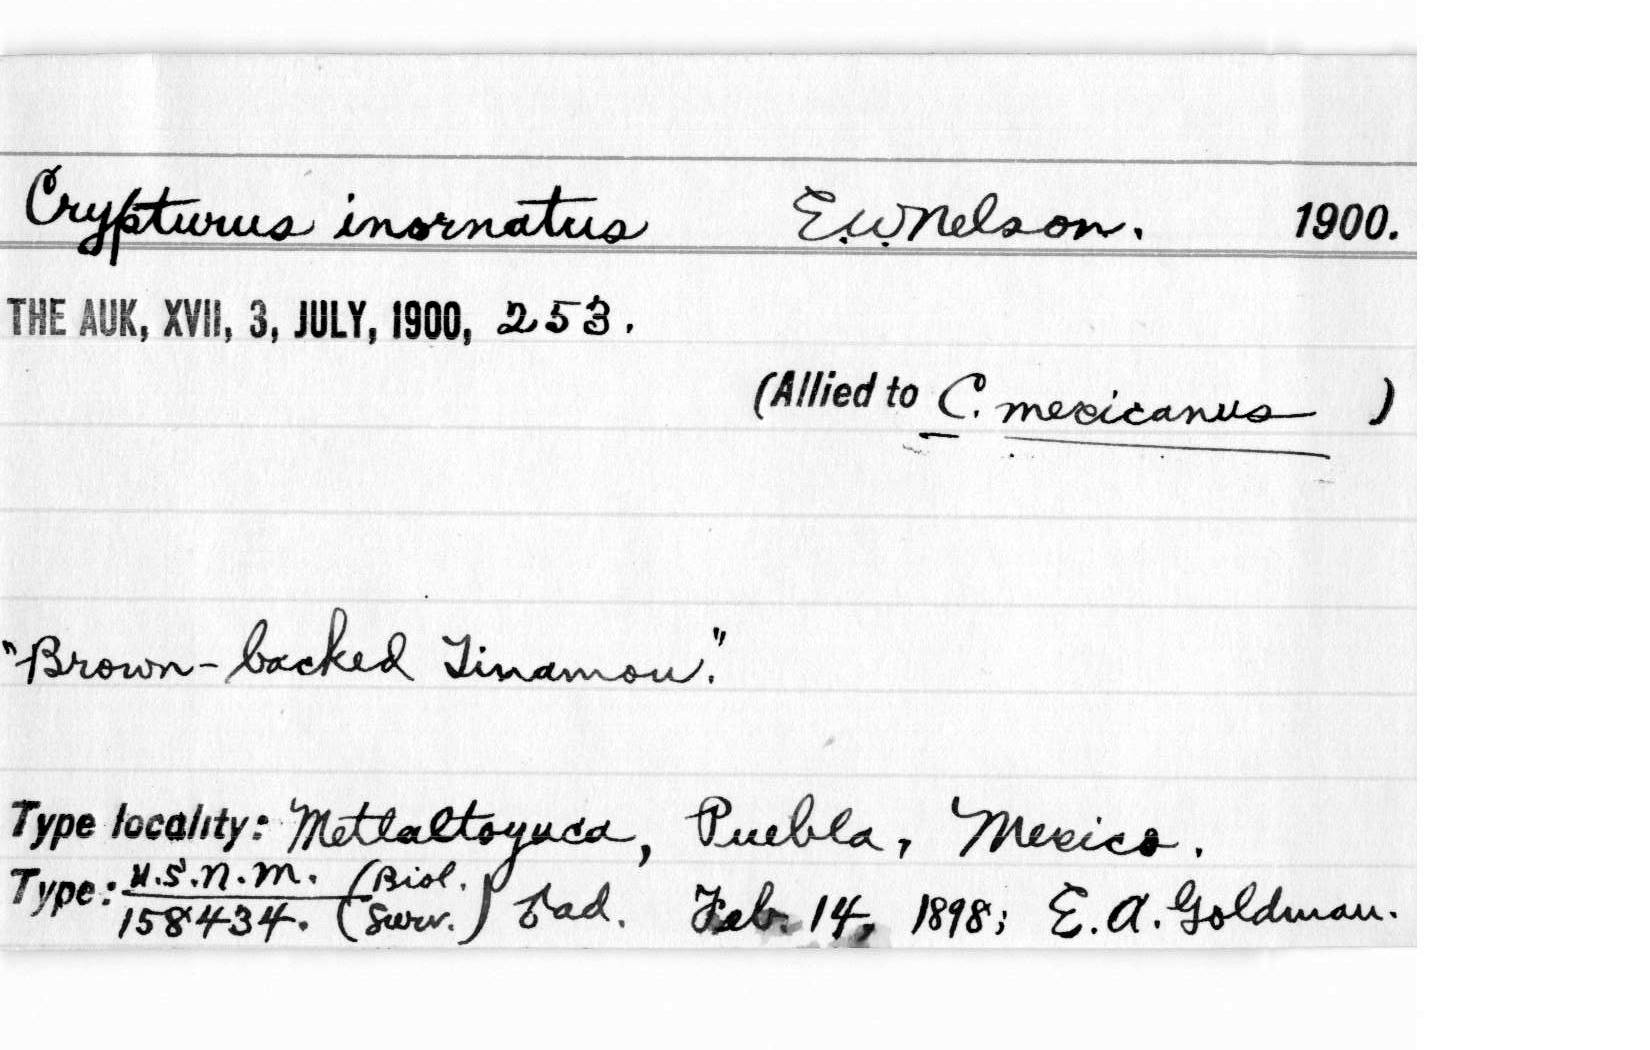 Crypturus inornatus E.W. Nelson. 1900.
THE AUK, XVII, 3, JULY, 1900, 253.
(Allied to C. mexicanus )
"Brown-backed Tinamou."
Type locality: Metlaltoyuca, Puebla, Mexico.
Type: U.S.N.M. (Biol.
158434. Surv.) ♀ad. Feb. 14, 1898; E. A. Goldman.